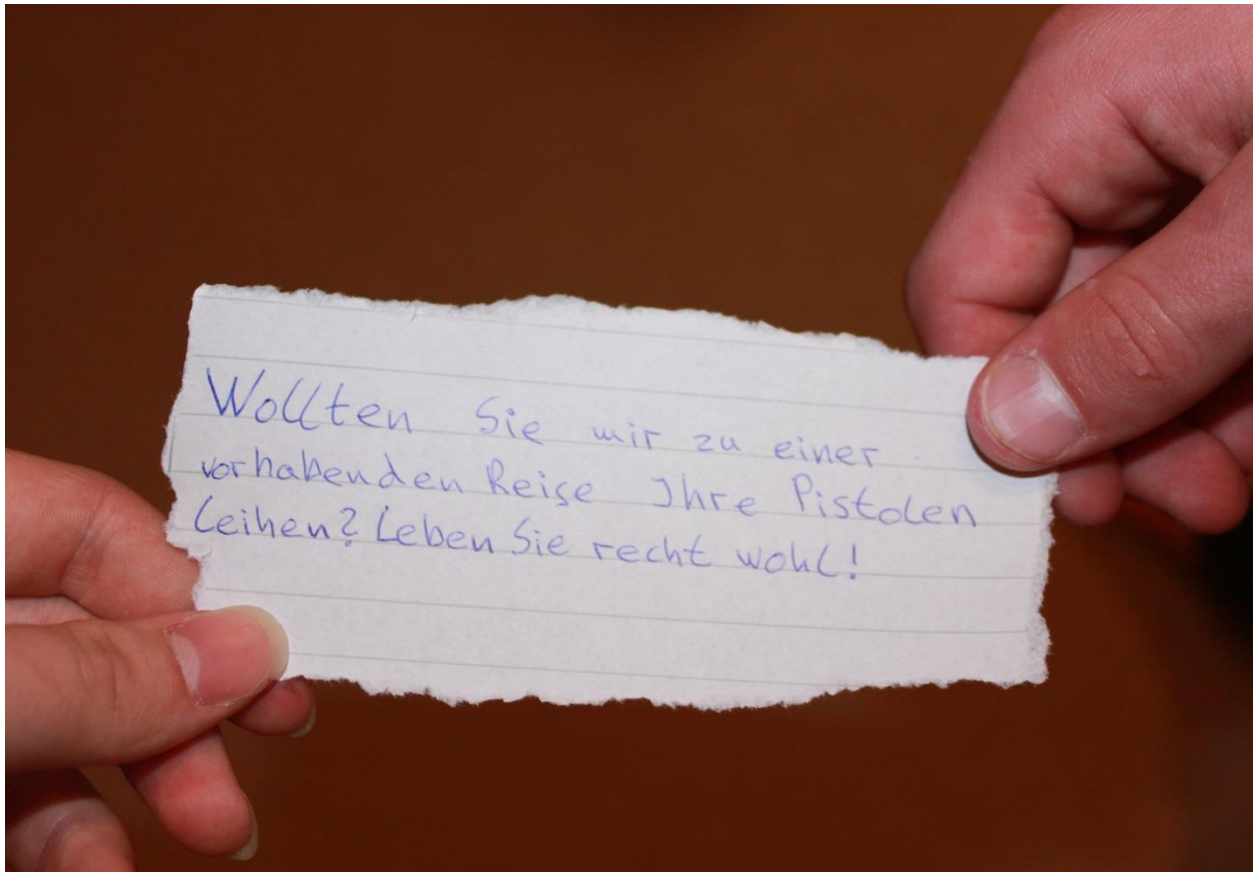 Wollten Sie mir zu einer
vorhabenden Reise Ihre Pistolen
leihen? Leben Sie recht wohl!